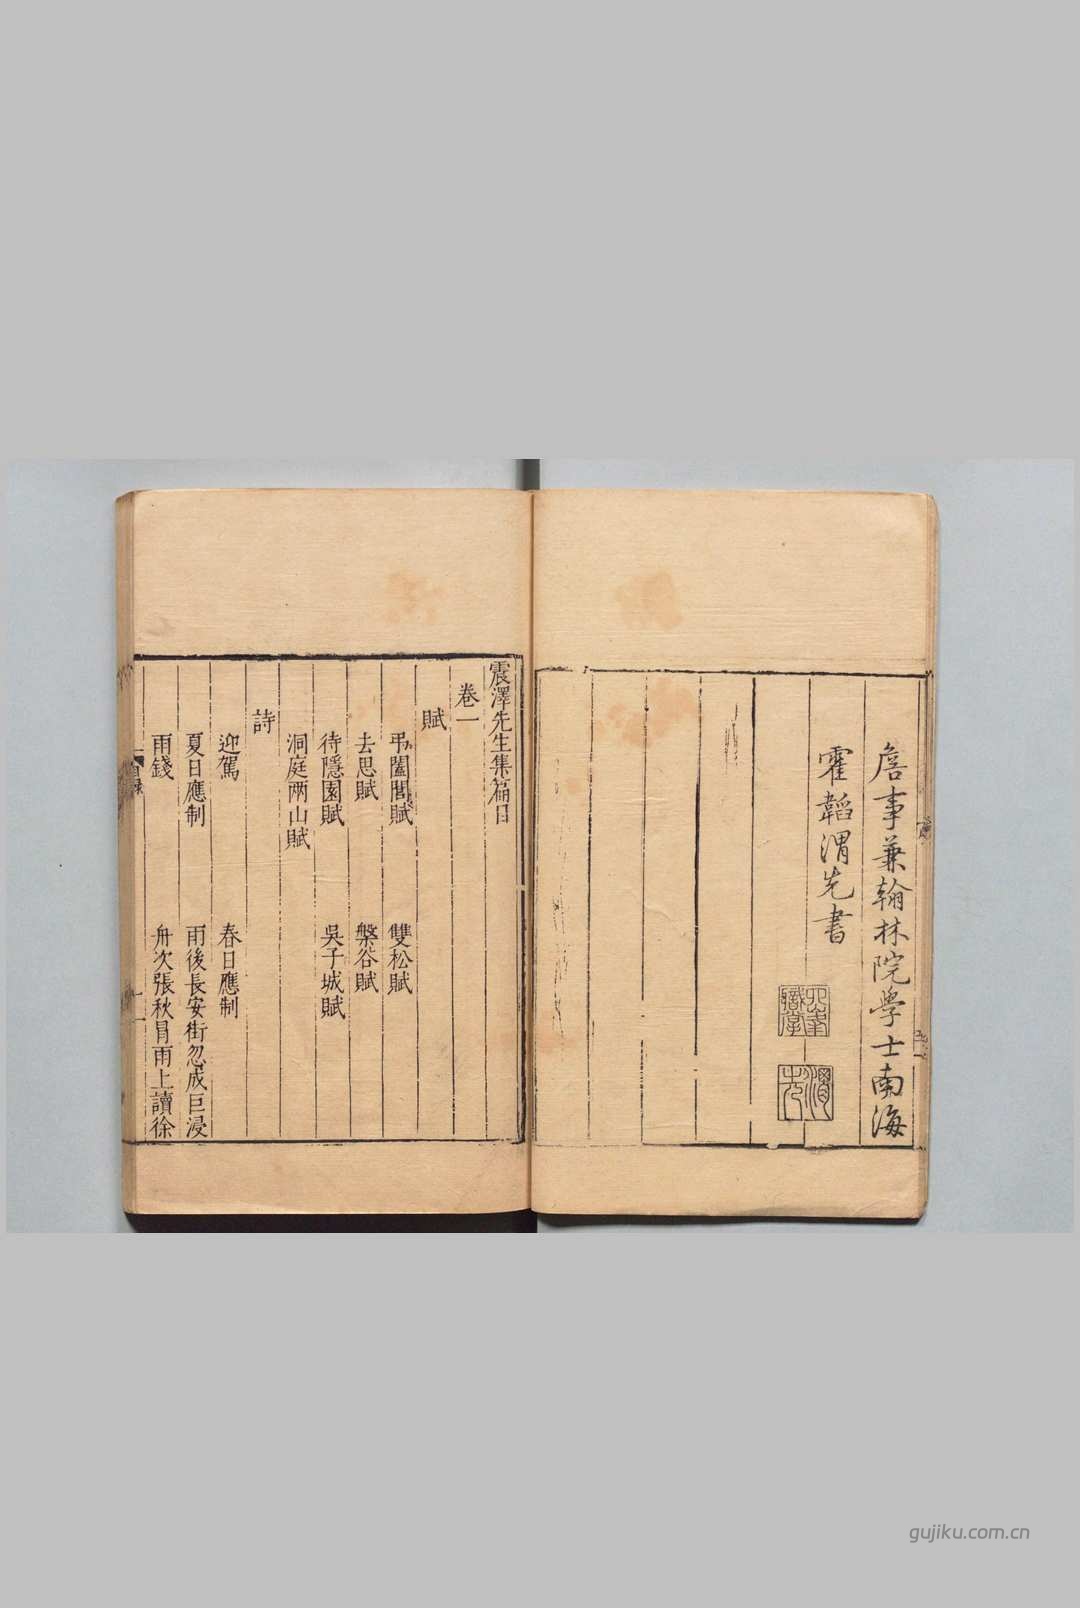 詹事兼翰林院學士南海
霍韜渭先書
渭先
震澤先生集篇目
卷一
賦
弔闔閭賦 雙松賦
去思賦 槃谷賦
待隱園賦 吳子城賦
洞庭两山賦
詩
迎駕 春日應制
夏日應制 雨後長安街忽成巨浸
雨錢 舟次張秋冐雨上讀徐
目録
一
gujiku.com.cn